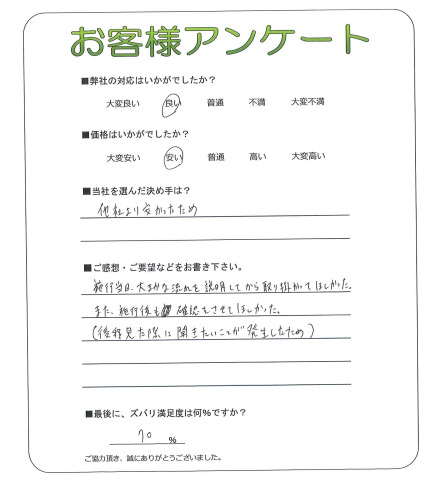 お客様アンケート
■弊社の対応はいかがでしたか?
大変良い 良い 普通 不満 大変不満
■価格はいかがでしたか?
大変安い 安い 普通 高い 大変高い
■当社を選んだ決め手は?
他社より安かったため
■ご感想・ご要望などをお書き下さい。
施行当日、大まかな流れを説明してから取り掛かてほしかった。
また、施行後も確認をさせてほしかった。
(後程見た際に聞きたいことが発生したため)
■最後に、ズバリ満足度は何%ですか?
70 %
ご協力頂き、誠にありがとうございました。